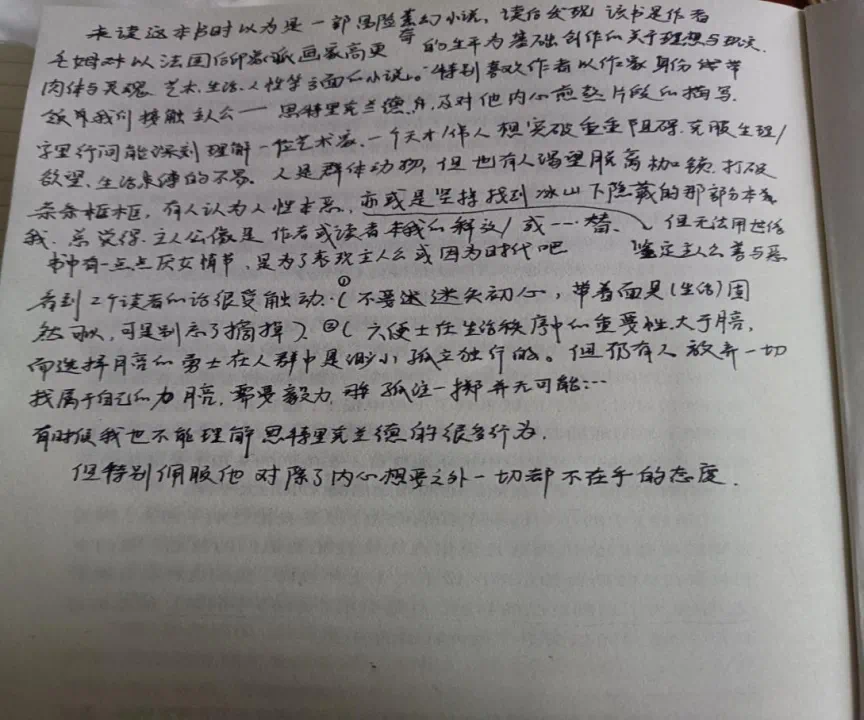 未读这本书时以为是一部冒险奇幻小说，读后发现 该书是作者
毛姆对以法国后印象派画家高更的生平为基础创作的关于理想与现实、
肉体与灵魂、艺术、生活、人性等方面的小说。特别喜欢作者以作家身份 带
领我们接触主人公——思特里克兰德，及对他内心煎熬片段的描写。
字里行间能深刻理解一位艺术家、一个天才/伟人想突破重重阻碍、克服生理/
欲望、生活束缚的不易。人是群体动物，但也有人渴望脱离枷锁、打破
条条框框，有人认为人性本恶，亦或是坚持找到冰山下隐藏的那部分本我
我总觉得主人公像是作者或读者本我的释放/或……替、但无法用世俗
鉴定主人公善与恶
书中有一点点厌女情节，是为了表现主人公或因为时代吧
看到2个读者的话很受触动：①（不要迷迷失初心，带着面具（生活）固
然可以，可是别忘了摘掉）②（六便士在生活秩序中的重要性大于月亮，
而选择月亮的勇士在人群中是渺小孤立独行的。但仍有人放弃一切
找属于自己的月亮，需要毅力、孤注一掷并无可能……
有时候我也不能理解思特里克兰德的很多行为，
但特别佩服他对除了内心想要之外一切都不在乎的态度.